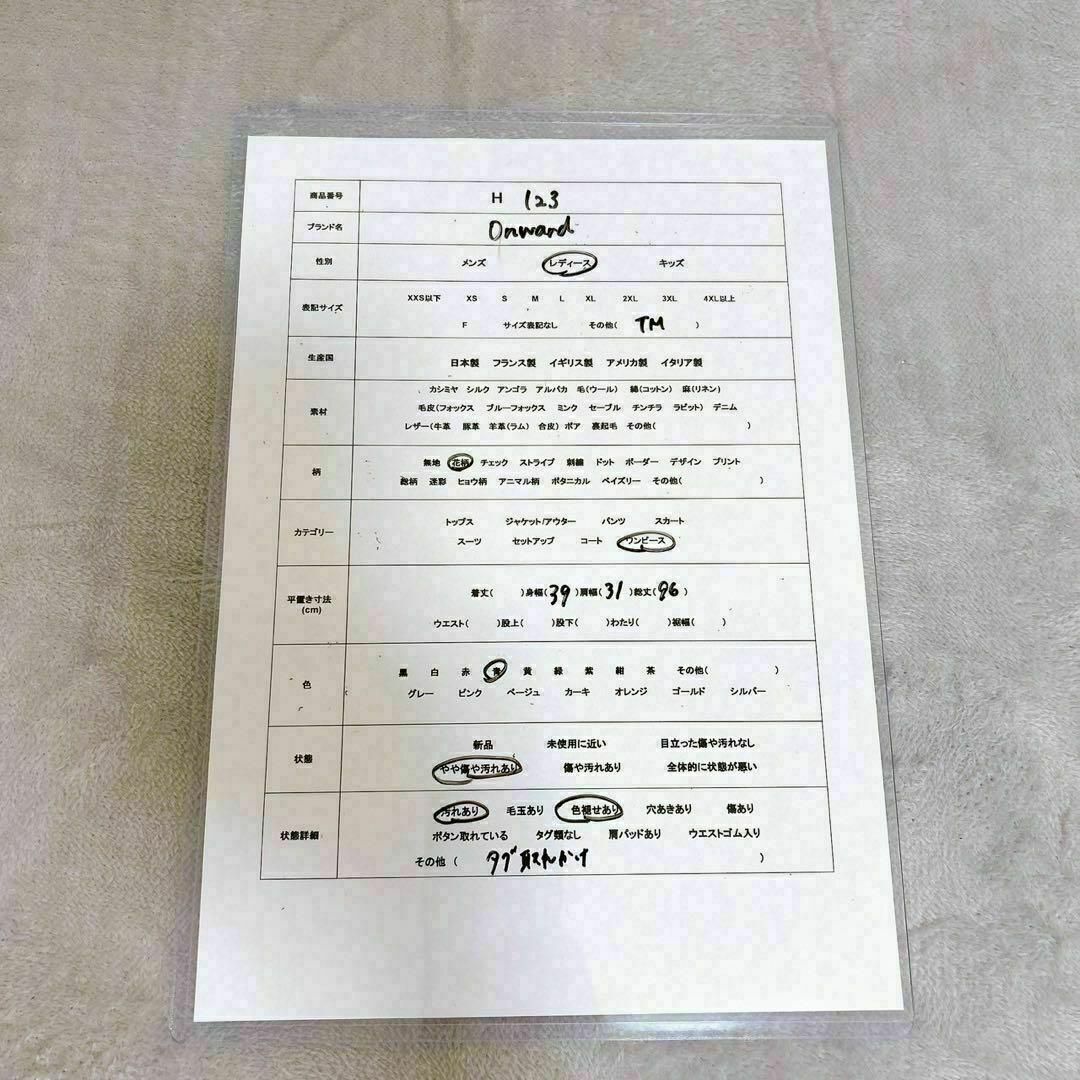 商品番号 H 123
ブランド名 Onward
性別 メンズ レディース キッズ
表記サイズ XXS以下 XS S M L XL 2XL 3XL 4XL以上
F サイズ表記なし その他( TM )
生産国 日本製 フランス製 イギリス製 アメリカ製 イタリア製
カシミヤ シルク アンゴラ アルパカ 毛(ウール) 綿(コットン) 麻(リネン)
素材 毛皮(フォックス ブルーフォックス ミンク セーブル チンチラ ラビット) デニム
レザー(牛革 豚革 羊革(ラム) 合皮) ボア 裏起毛 その他( )
柄 無地 花柄 チェック ストライプ 刺繍 ドット ボーダー デザイン プリント
総柄 迷彩 ヒョウ柄 アニマル柄 ボタニカル ペイズリー その他( )
カテゴリー トップス ジャケット/アウター パンツ スカート
スーツ セットアップ コート ワンピース
平置き寸法 着丈( )身幅( 39 )肩幅( 31 )総丈( 96 )
(cm) ウエスト( )股上( )股下( )わたり( )裾幅( )
色 黒 白 赤 青 黄 緑 紫 紺 茶 その他( )
グレー ピンク ベージュ カーキ オレンジ ゴールド シルバー
状態 新品 未使用に近い 目立った傷や汚れなし
やや傷や汚れあり 傷や汚れあり 全体的に状態が悪い
状態詳細 汚れあり 毛玉あり 色褪せあり 穴あきあり 傷あり
ボタン取れている タグ類なし 肩パッドあり ウエストゴム入り
その他 ( タグ取れかけ )